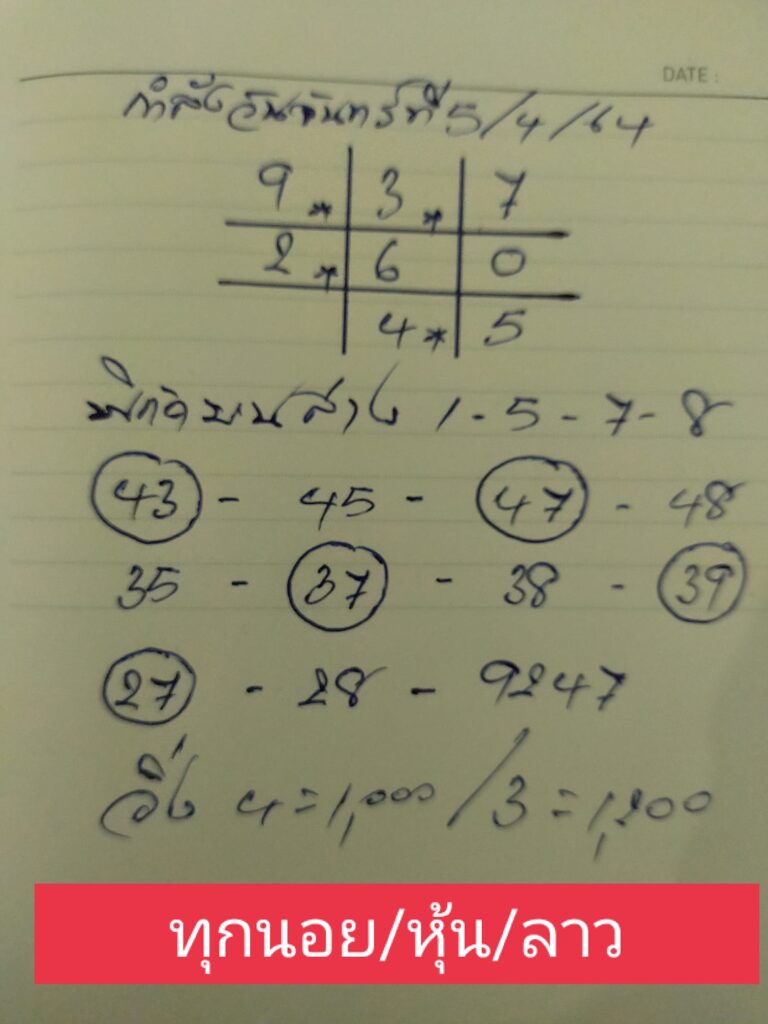 DATE :
กำลังวันจันทร์ที่ 5/4/64
9 * 3 * 7
2 * 6 0
4 * 5
พิกัดบนล่าง 1-5-7-8
43 - 45 - 47 - 48
35 - 37 - 38 - 39
27 - 28 - 9247
วิ่ง 4=1,000/3=1,200
ทุกนอย/หุ้น/ลาว